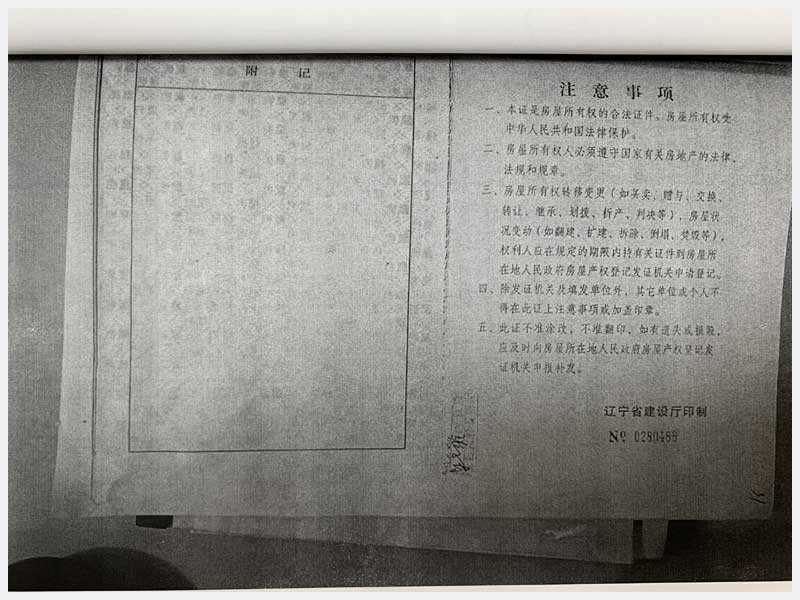 附 记
注 意 事 项
一、本证是房屋所有权的合法证件。房屋所有权受
中华人民共和国法律保护。
二、房屋所有权人必须遵守国家有关房地产的法律、
法规和规章。
三、房屋所有权转移变更（如买卖、赠与、交换、
转让、继承、划拨、析产、判决等），房屋状
况变动（如翻建、扩建、拆除、倒塌、焚毁等），
权利人应在规定的期限内持有关证件到房屋所
在地人民政府房屋产权登记发证机关申请登记。
四、除发证机关及填发单位外，其它单位或个人不
得在此证上注意事项或加盖印章。
五、此证不准涂改，不准翻印，如有遗失或损毁，
应及时向房屋所在地人民政府房屋产权登记发
证机关申报补发。
辽宁省建设厅印制
№ 0280499